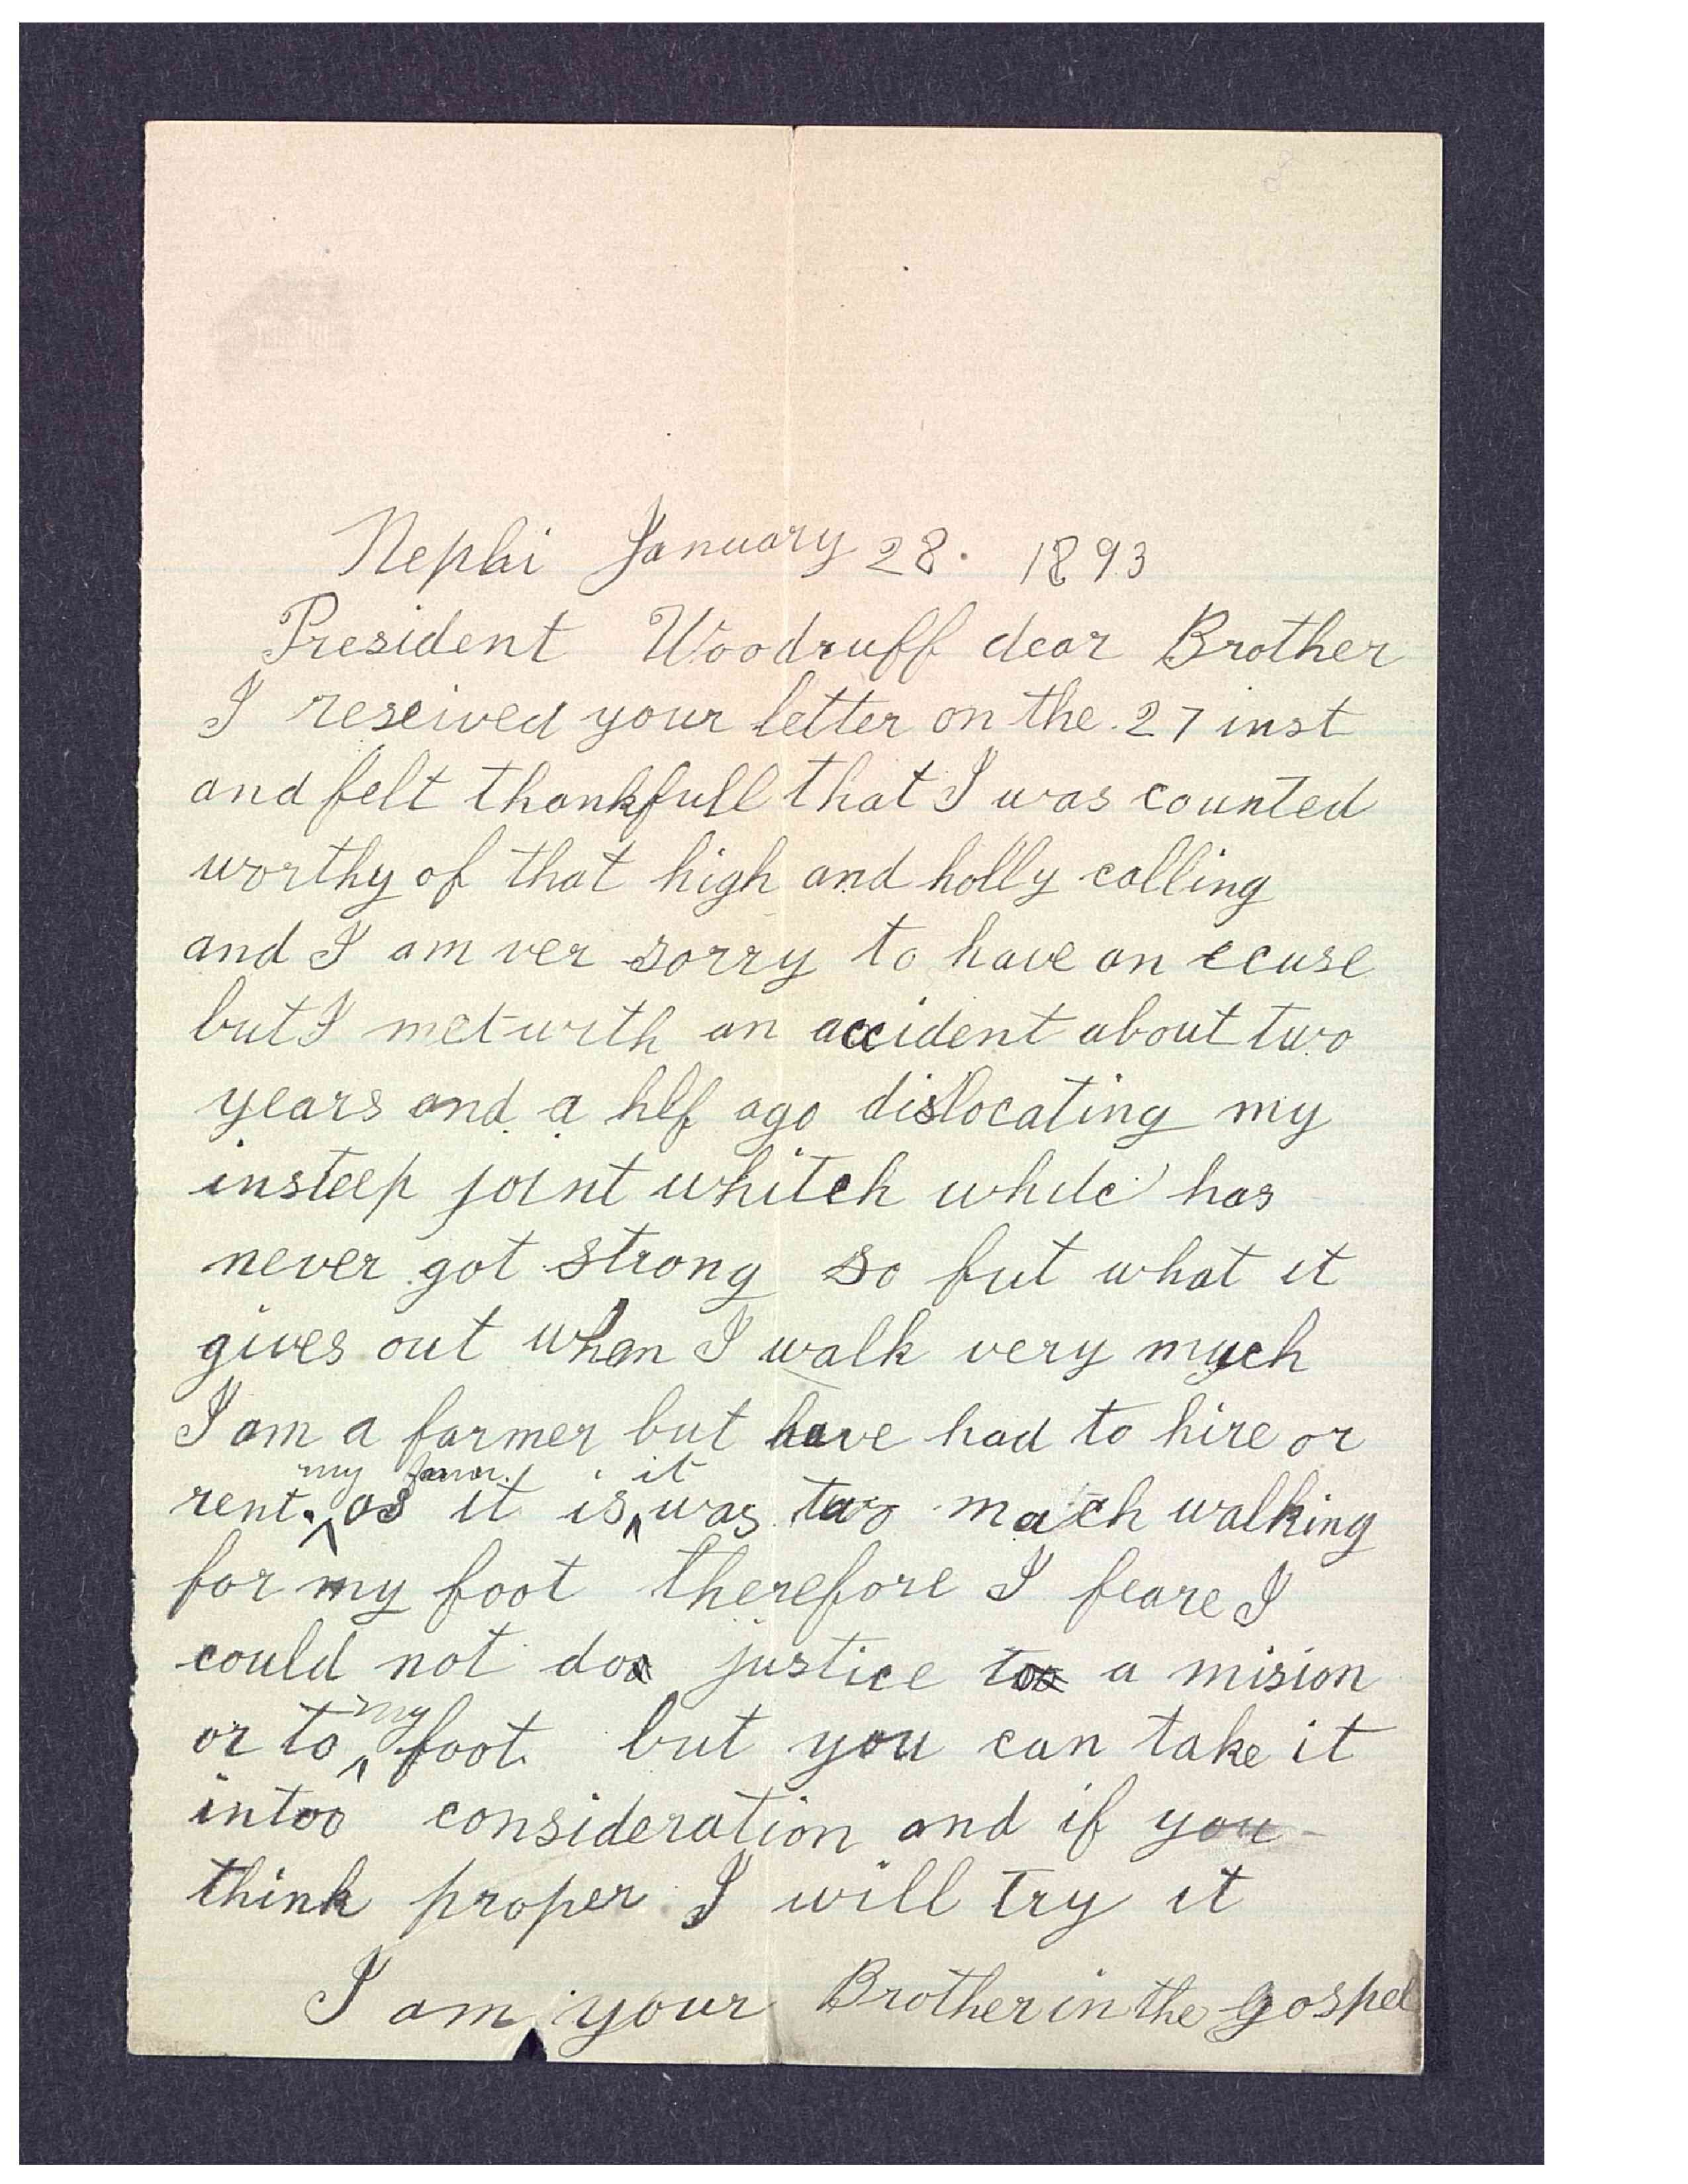 Nephi January 28. 1893
President Woodruff dear Brother
I reseived your letter on the 27 inst
and felt thankfull that I was counted
worthy of that high and holly calling
and I am ver sorry to have an ecuse
but I met with an accident about two
years and a hlf ago dislocating my
insteep joint whitch while has
never got strong so but what it
gives out when I walk very much
I am a farmer but have had to hire or
my farm it
rent. as it is was two much walking
for my foot therefore I feare I
could not do justice to a mision
my
or to foot but you can take it
intoo consideration and if you
think proper I will try it
I am your Brother in the gospel